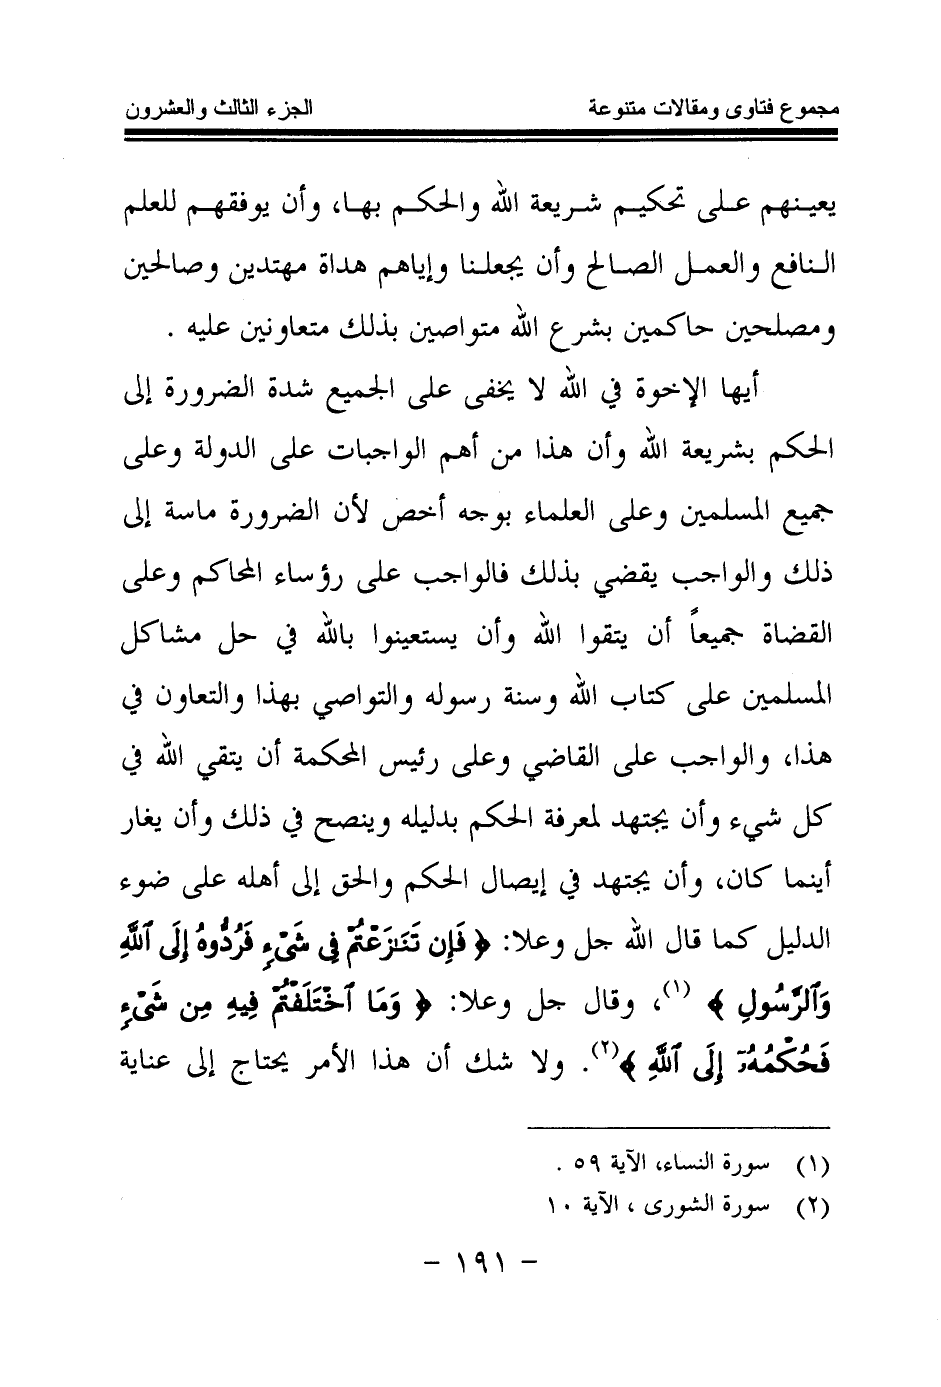 مجموع فتاوى ومقالات متنوعة الجزء الثالث والعشرون
يعينهم على تحكيم شريعة الله والحكم بها، وأن يوفقهم للعلم
النافع والعمل الصالح وأن يجعلنا وإياهم هداة مهتدين وصالحين
ومصلحين حاكمين بشرع الله متواصين بذلك متعاونين عليه .
أيها الإخوة في الله لا يخفى على الجميع شدة الضرورة إلى
الحكم بشريعة الله وأن هذا من أهم الواجبات على الدولة وعلى
جميع المسلمين وعلى العلماء بوجه أخص لأن الضرورة ماسة إلى
ذلك والواجب يقضي بذلك فالواجب على رؤساء المحاكم وعلى
القضاة جميعاً أن يتقوا الله وأن يستعينوا بالله في حل مشاكل
المسلمين على كتاب الله وسنة رسوله والتواصي بهذا والتعاون في
هذا، والواجب على القاضي وعلى رئيس المحكمة أن يتقي الله في
كل شيء وأن يجتهد لمعرفة الحكم بدليله وينصح في ذلك وأن يغار
أينما كان، وأن يجتهد في إيصال الحكم والحق إلى أهله على ضوء
الدليل كما قال الله جل وعلا: ﴿ فَإِن تَنَٰزَعْتُمْ فِى شَىْءٍ فَرُدُّوهُ إِلَى ٱللَّهِ
وَٱلرَّسُولِ ﴾ (١)، وقال جل وعلا: ﴿ وَمَا ٱخْتَلَفْتُمْ فِيهِ مِن شَىْءٍ
فَحُكْمُهُۥٓ إِلَى ٱللَّهِ ﴾(٢). ولا شك أن هذا الأمر يحتاج إلى عناية
(١) سورة النساء، الآية ٥٩ .
(٢) سورة الشورى ، الآية ١٠
- ١٩١ -